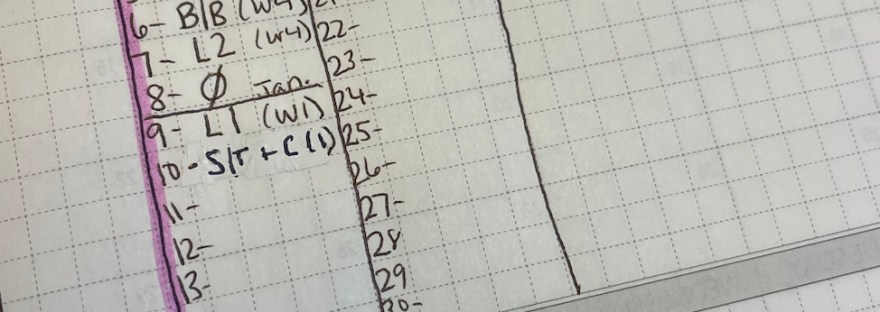 6- B/B (W4)
7- L2 (W4)
8- Ø Jan.
9- L1 (W1)
10- S/T + C (1)
11-
12-
13-
22-
23-
24-
25-
26-
27-
28
29
30-